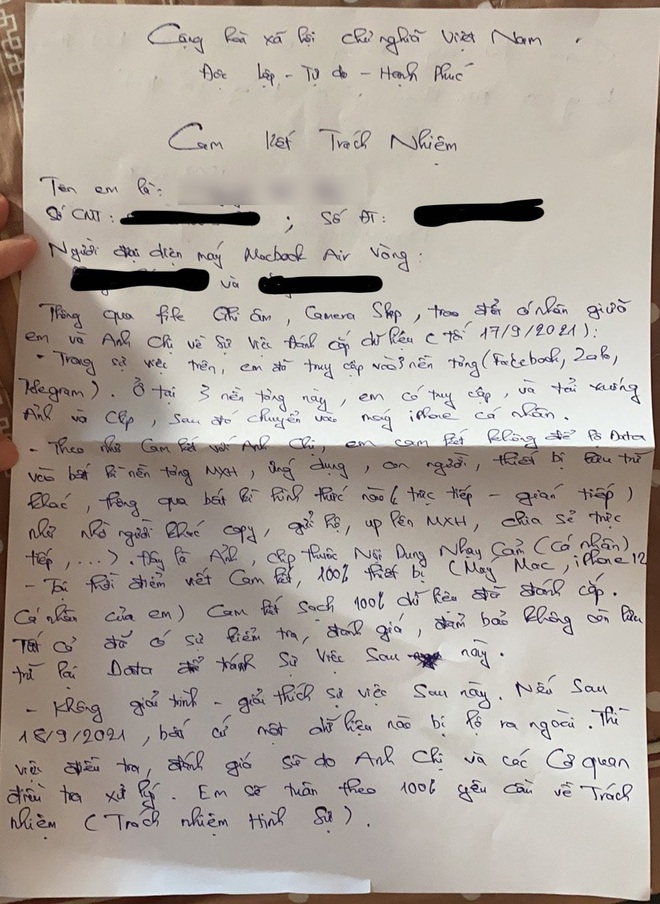 Cộng hoà xã hội chủ nghĩa Việt Nam.
Độc lập - Tự do - Hạnh Phúc
Cam kết Trách Nhiệm
Tên em là:
Số CMT: ; Số ĐT:
Người đại diện máy Macbook Air Vàng:
và
Thông qua file Ghi âm, Camera Shop, trao đổi cá nhân giữa
em và Anh Chị về Sự Việc Đánh cắp dữ liệu (Tối 17/9/2021):
- Trong sự việc trên, em đã truy cập vào 3 nền tảng (Facebook, Zalo,
Telegram). Ở tại 3 nền tảng này, em có truy cập, và tải xuống
Ảnh và Clip, sau đó chuyển vào máy iPhone cá nhân.
- Theo như Cam kết với Anh Chị, em cam kết không để lộ Data
vào bất kì nền tảng MXH, ứng dụng, con người, thiết bị lưu trữ
khác, thông qua bất kì hình thức nào (trực tiếp - gián tiếp)
như nhờ người khác copy, gửi hộ, up lên MXH, chia sẻ trực
tiếp,...). Đây là Ảnh, clip thuộc Nội Dung Nhạy Cảm (Cá nhân)
- Tại thời điểm viết Cam kết, 100% thiết bị (Máy Mac, iPhone 12
Cá nhân của em) Cam kết sạch 100% dữ liệu đã đánh cắp.
Tất cả đã có sự kiểm tra, đánh giá, đảm bảo không còn lưu
trữ lại Data để tránh Sự Việc Sau này.
- Không giải trình - giải thích sự việc sau này. Nếu Sau
18/9/2021, bất cứ một dữ liệu nào bị lộ ra ngoài. Thì
việc điều tra, đánh giá sẽ do Anh Chị và các Cơ quan
điều tra xử lý. Em sẽ tuân theo 100% yêu cầu về Trách
nhiệm (Trách nhiệm Hình Sự).